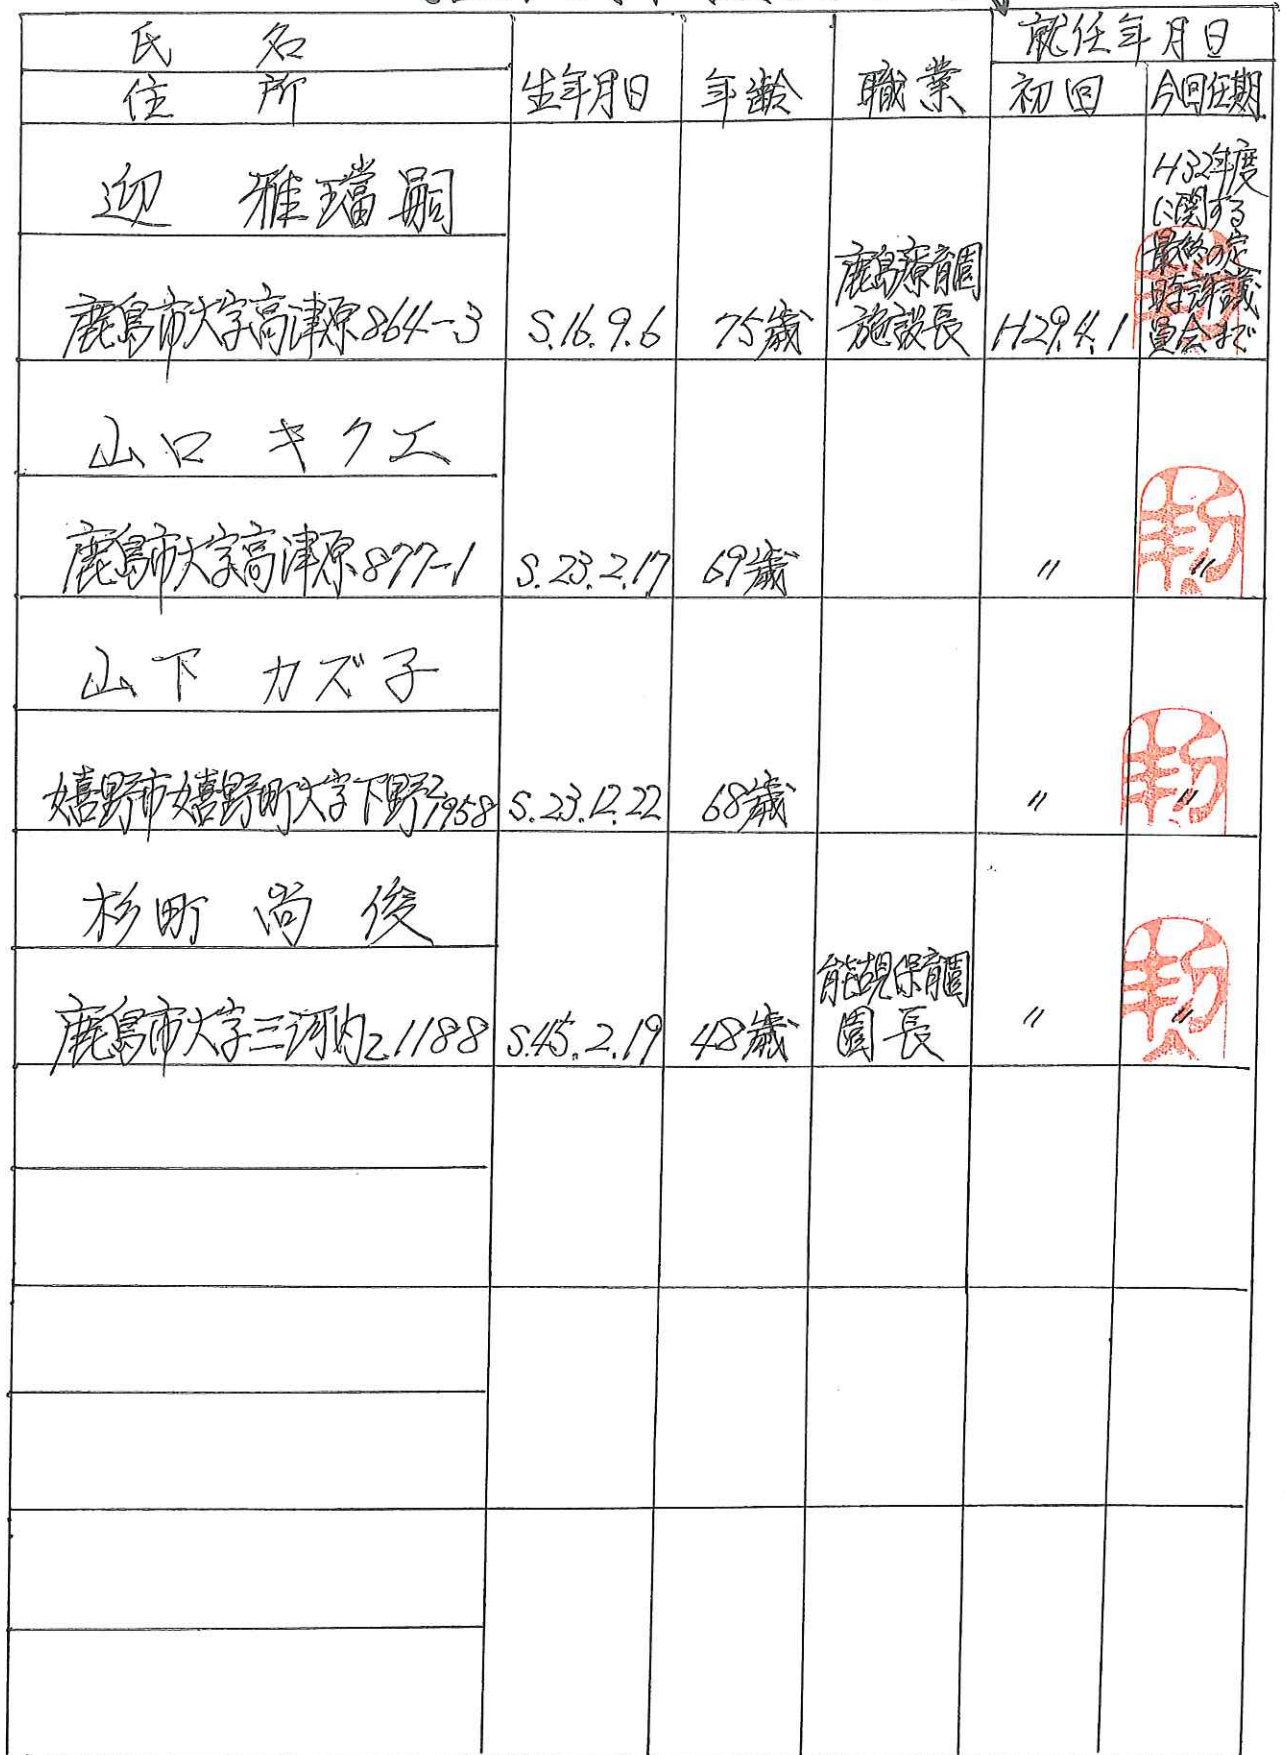 氏 名
住 所
生年月日
年齢
職業
就任年月日
初回
今回任期
迎 雅璫嗣
鹿島市大字高津原864-3
S.16.9.6
75歳
鹿島療育園
施設長
H29.4.1
H32年度
に関する
最終の定
時評議
員会まで
山口 キクエ
鹿島市大字高津原877-1
S.23.2.17
69歳
〃
〃
山下 カズ子
嬉野市嬉野町大字下野乙1958
S.23.12.22
68歳
〃
〃
杉町 尚俊
鹿島市大字三河内乙1188
S.45.2.19
48歳
能古見保育園
園長
〃
〃